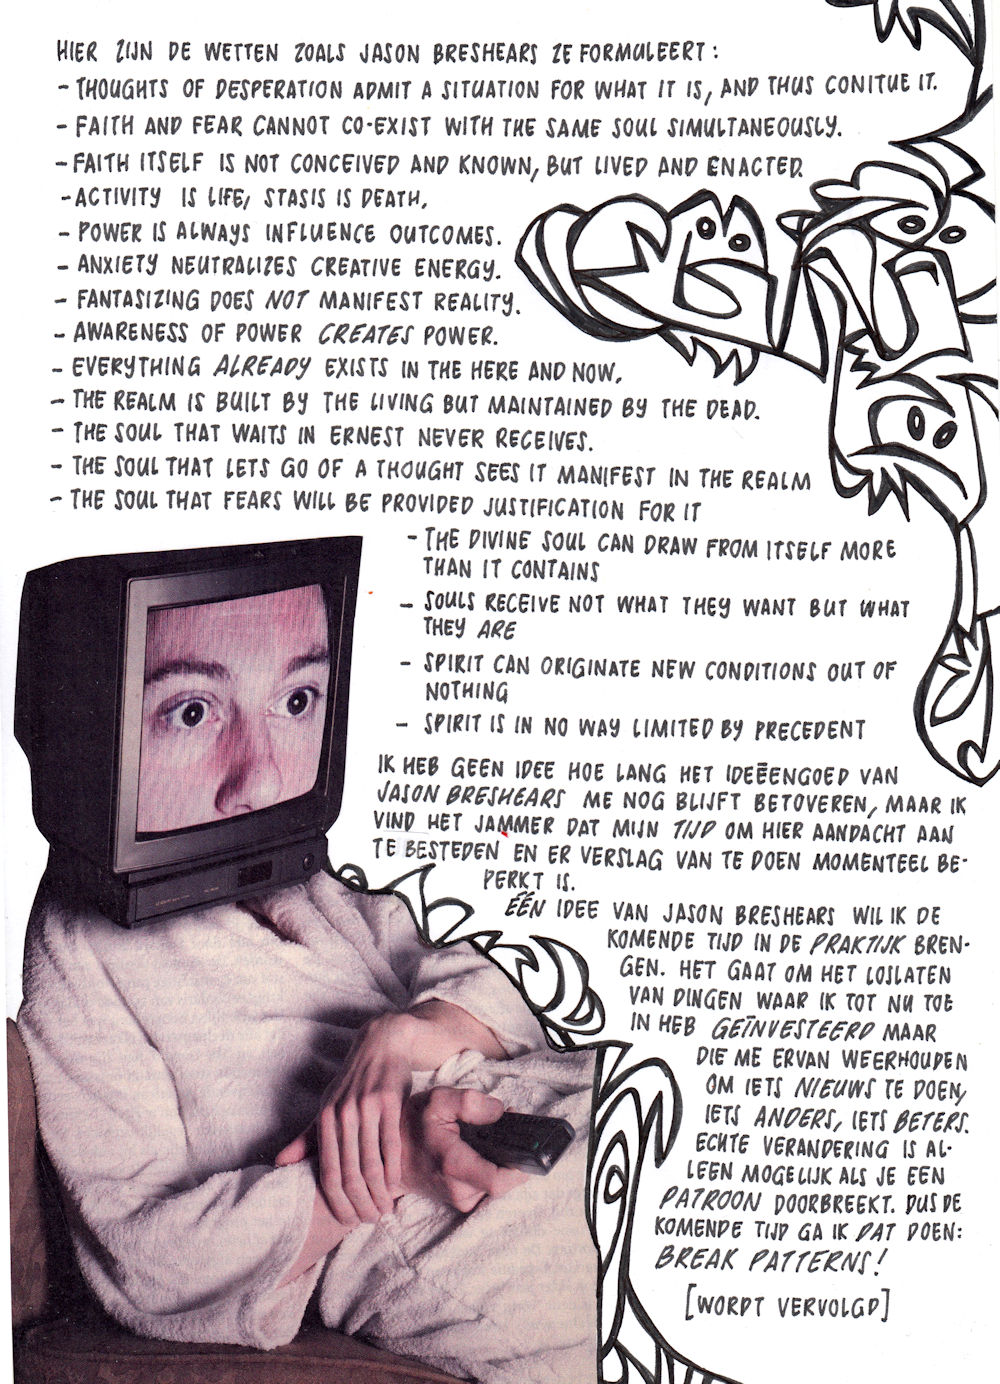 HIER ZIJN DE WETTEN ZOALS JASON BRESHEARS ZE FORMULEERT:
- THOUGHTS OF DESPERATION ADMIT A SITUATION FOR WHAT IT IS, AND THUS CONITUE IT.
- FAITH AND FEAR CANNOT CO-EXIST WITH THE SAME SOUL SIMULTANEOUSLY.
- FAITH ITSELF IS NOT CONCEIVED AND KNOWN, BUT LIVED AND ENACTED.
- ACTIVITY IS LIFE, STASIS IS DEATH.
- POWER IS ALWAYS INFLUENCE OUTCOMES.
- ANXIETY NEUTRALIZES CREATIVE ENERGY.
- FANTASIZING DOES NOT MANIFEST REALITY.
- AWARENESS OF POWER CREATES POWER.
- EVERYTHING ALREADY EXISTS IN THE HERE AND NOW.
- THE REALM IS BUILT BY THE LIVING BUT MAINTAINED BY THE DEAD.
- THE SOUL THAT WAITS IN ERNEST NEVER RECEIVES.
- THE SOUL THAT LETS GO OF A THOUGHT SEES IT MANIFEST IN THE REALM
- THE SOUL THAT FEARS WILL BE PROVIDED JUSTIFICATION FOR IT
- THE DIVINE SOUL CAN DRAW FROM ITSELF MORE
THAN IT CONTAINS
- SOULS RECEIVE NOT WHAT THEY WANT BUT WHAT
THEY ARE
- SPIRIT CAN ORIGINATE NEW CONDITIONS OUT OF
NOTHING
- SPIRIT IS IN NO WAY LIMITED BY PRECEDENT
IK HEB GEEN IDEE HOE LANG HET IDEEËENGOED VAN
JASON BRESHEARS ME NOG BLIJFT BETOVEREN, MAAR IK
VIND HET JAMMER DAT MIJN TIJD OM HIER AANDACHT AAN
TE BESTEDEN EN ER VERSLAG VAN TE DOEN MOMENTEEL BE-
PERKT IS.
ÉÉN IDEE VAN JASON BRESHEARS WIL IK DE
KOMENDE TIJD IN DE PRAKTIJK BREN-
GEN. HET GAAT OM HET LOSLATEN
VAN DINGEN WAAR IK TOT NU TOE
IN HEB GEÏNVESTEERD MAAR
DIE ME ERVAN WEERHOUDEN
OM IETS NIEUWS TE DOEN,
IETS ANDERS, IETS BETERS.
ECHTE VERANDERING IS AL-
LEEN MOGELIJK ALS JE EEN
PATROON DOORBREEKT. DUS DE
KOMENDE TIJD GA IK DAT DOEN:
BREAK PATTERNS!
[WORDT VERVOLGD]